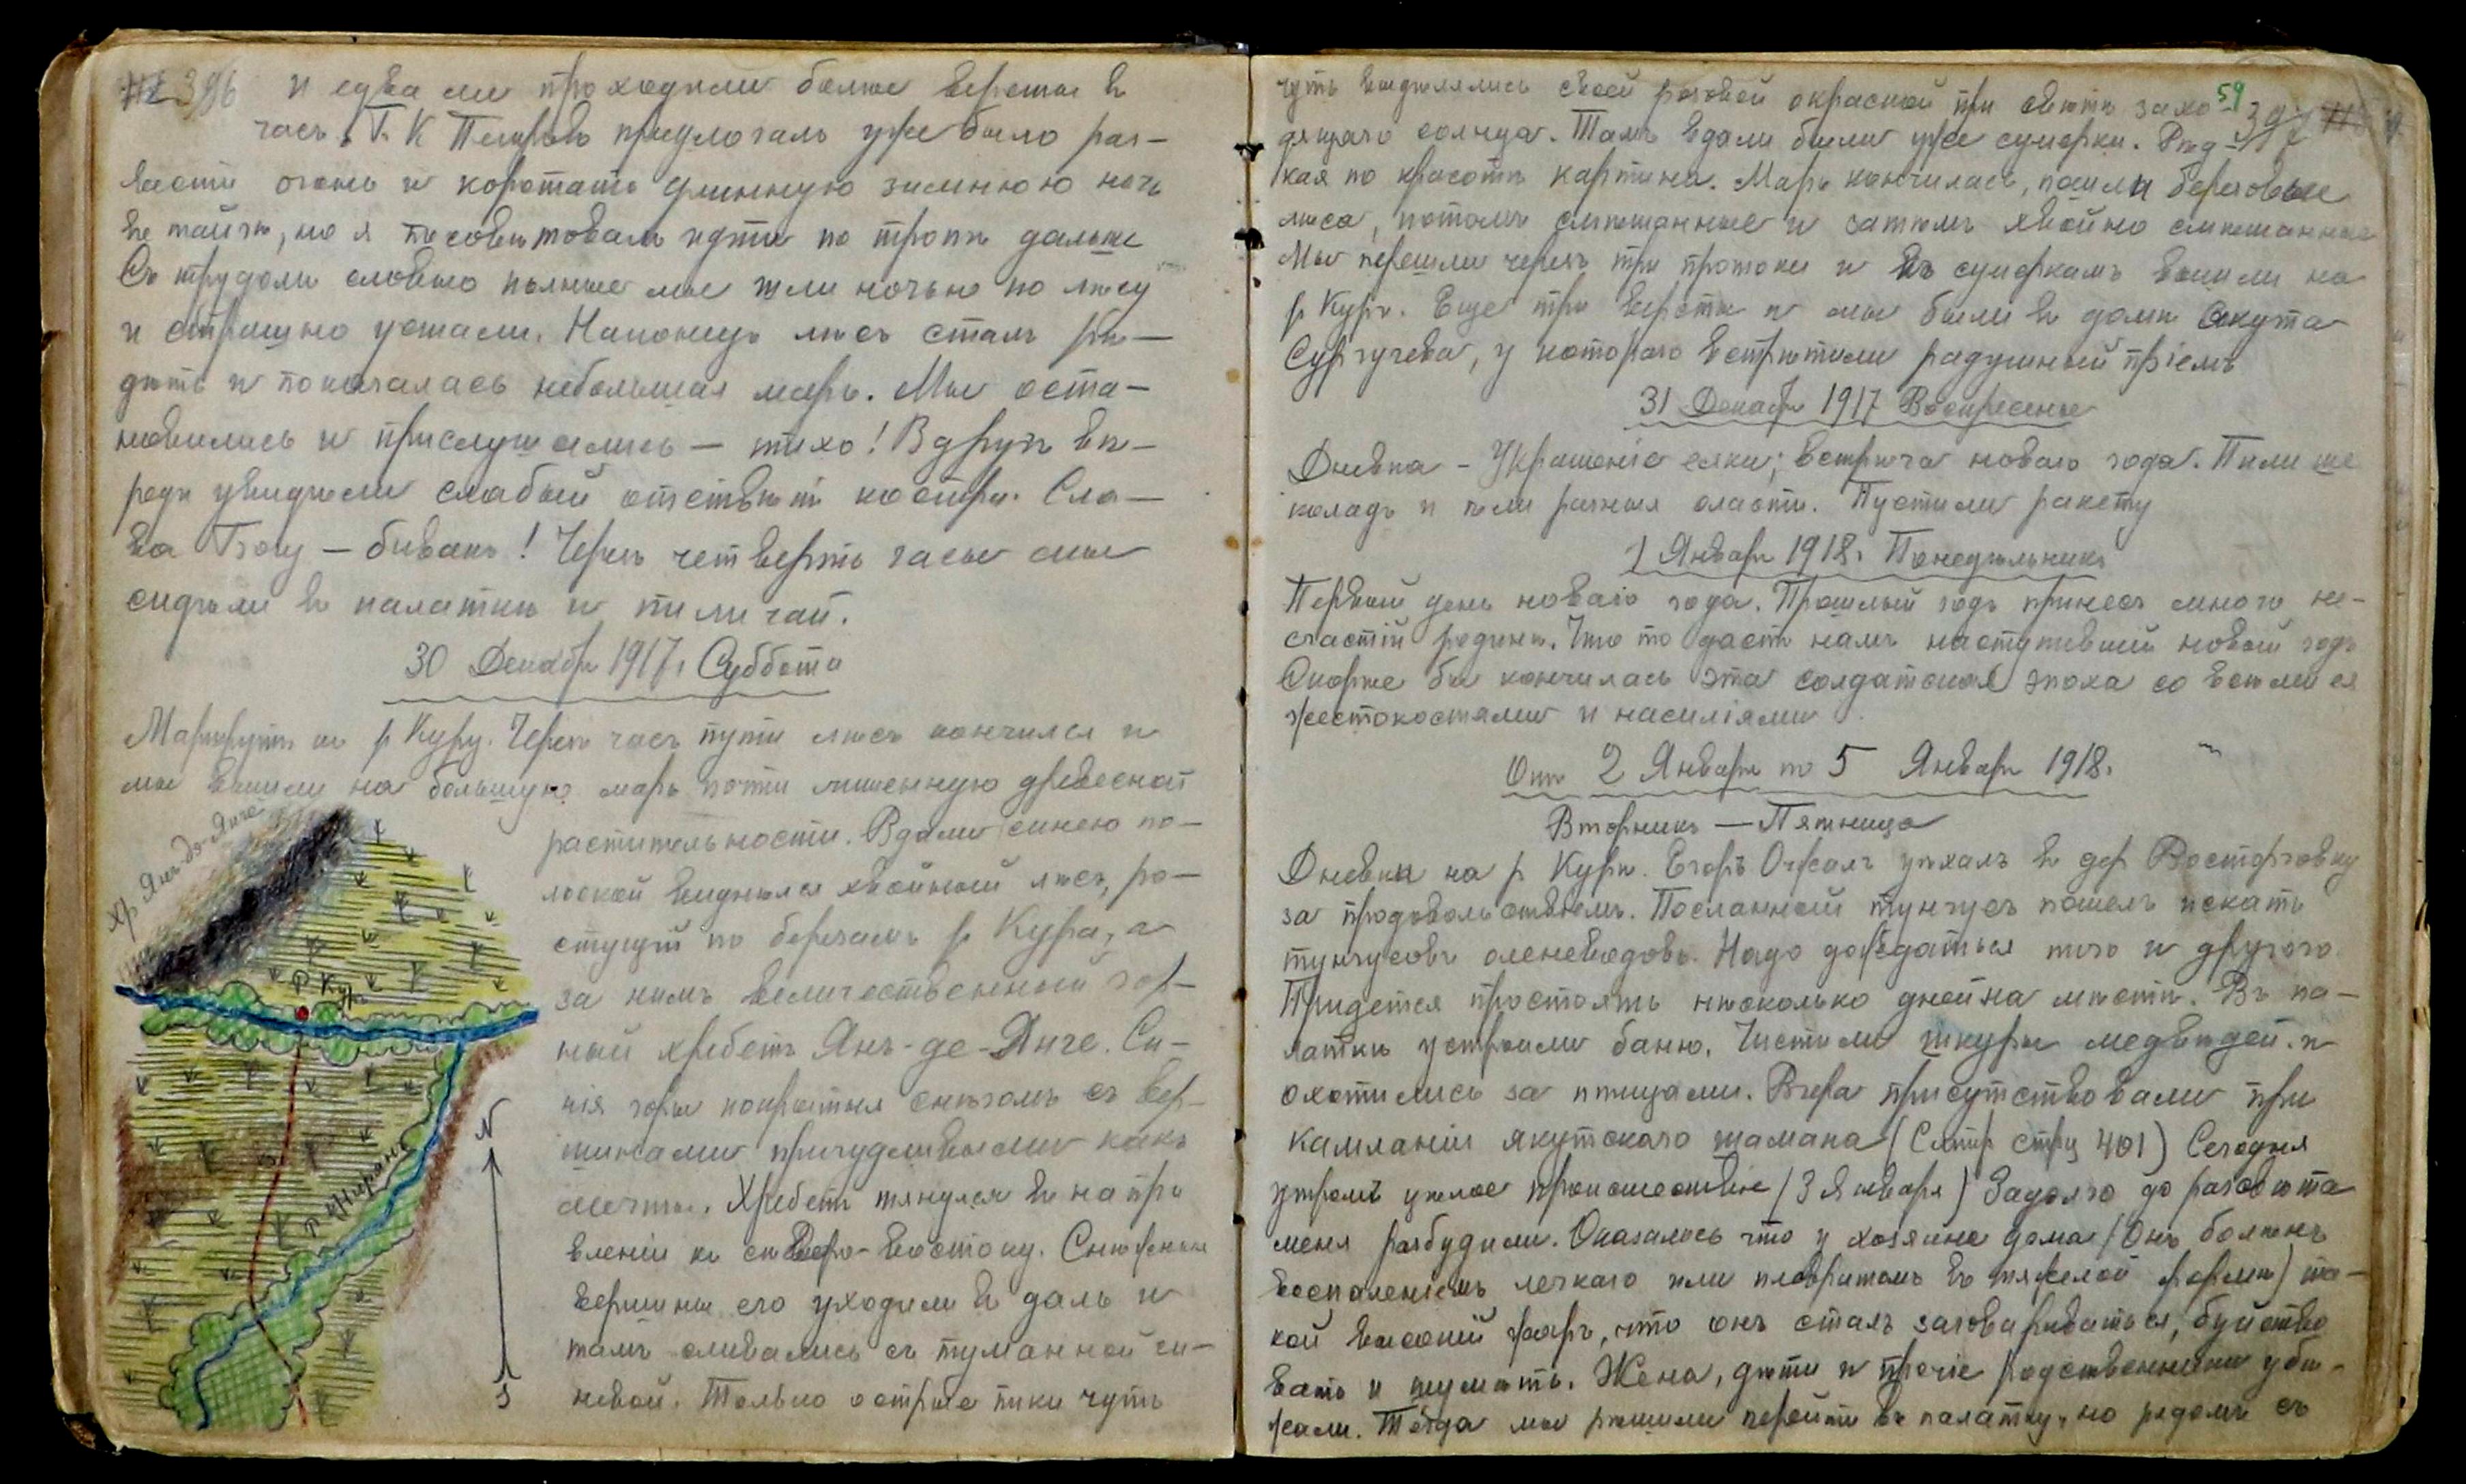 396
и едва ли проходили более версты въ
часъ. Г. К Петровъ предлогалъ уже было раз-
вести огонь и коротать длинную зимнюю ночь
въ тайгѣ, но я посовѣтовалъ идти по тропѣ дальше
Съ трудомъ словно пьяные мы шли ночью по лѣсу
и страшно устали. Наконецъ лѣсъ сталъ рѣ-
дѣть и показалась небольшая марь. Мы оста-
новились и прислушались — тихо! Вдругъ впе-
реди увидѣли слабый отсвѣтъ костра. Сла-
ва Богу — бивакъ! Черезъ четверть часа мы
сидѣли въ палаткѣ и пили чай.
30 Декабр 1917г Суббота
Маршрутъ къ р Куру. Черезъ часъ пути лѣсъ кончился и
мы вышли на большую марь почти лишенную древесной
растительности. Вдали синею по-
лоской виднѣлся хвойный лѣсъ, ра-
стущій по берегамъ р Кура, а
за нимъ величественный гор-
ный хребетъ Янъ-де-Янге. Си-
нія горы покрытыя снѣгомъ съ вер-
шинами причудливыми какъ
мечты. Хребетъ тянулся въ напра
вленіи къ сѣверо-востоку. Снѣжныя
вершины его уходили въ даль и
тамъ сливались съ туманной си-
невой. Только острые пики чуть
Хр Янъ-дэ-Янге
Р Куръ
N
S
59
397
чуть выдѣлялись своей розовой окраской при свѣтѣ захо-
дящаго солнца. Тамъ вдали были уже сумерки. Рѣд-
кая по красотѣ картина. Марь кончилась, пошли березовые
лѣса, потомъ смѣшанные и затѣмъ хвойно смѣшанные
Мы перешли черезъ три протоки и къ сумеркамъ вышли на
р Куръ. Еще три версты и мы были въ домѣ якута
Сургучева, у котораго встрѣтили радушный пріемъ
31 Декабр 1917 Воскресенье
Дневка - Украшеніе елки; встрѣча новаго года. Пили шо
коладъ и ѣли разныя сласти. Пустили ракету
1 Январ 1918г Понедѣльникъ
Первый день новаго года. Прошлый годъ принесъ много не-
счастій родинѣ. Что то дастъ намъ наступившій новый годъ
Скорѣе бы кончилась эта солдатская эпоха со всѣми ея
жестокостями и насиліями
Отъ 2 Января по 5 Январ 1918г
Вторникъ — Пятница
Дневки на р Курѣ. Егоръ Ожалъ уѣхалъ въ дер Восторговку
за продовольствіемъ. Посланный тунгусъ пошелъ искать
тунгусовъ оленеводовъ. Надо дождаться того и другого.
Придется простоять нѣсколько дней на мѣстѣ. Въ па-
латкѣ устроили баню. Чистили шкуры медвѣдей и
охотились за птицами. Вчера присутствовали при
камланіи якутскаго шамана (Смтр стрц 401) Сегодня
утромъ цѣлое происшествіе (3 Января) Задолго до разсвѣта
меня разбудили. Оказалось что у хозяина дома (Онъ боленъ
воспаленіемъ легкаго или плевритомъ въ тяжелой формѣ) та-
кой высокій жаръ, что онъ сталъ заговариваться, буйство
вать и шумѣть. Жена, дѣти и прочіе родственники убѣ-
жали. Тогда мы рѣшили перейти въ палатку, но рядомъ съ